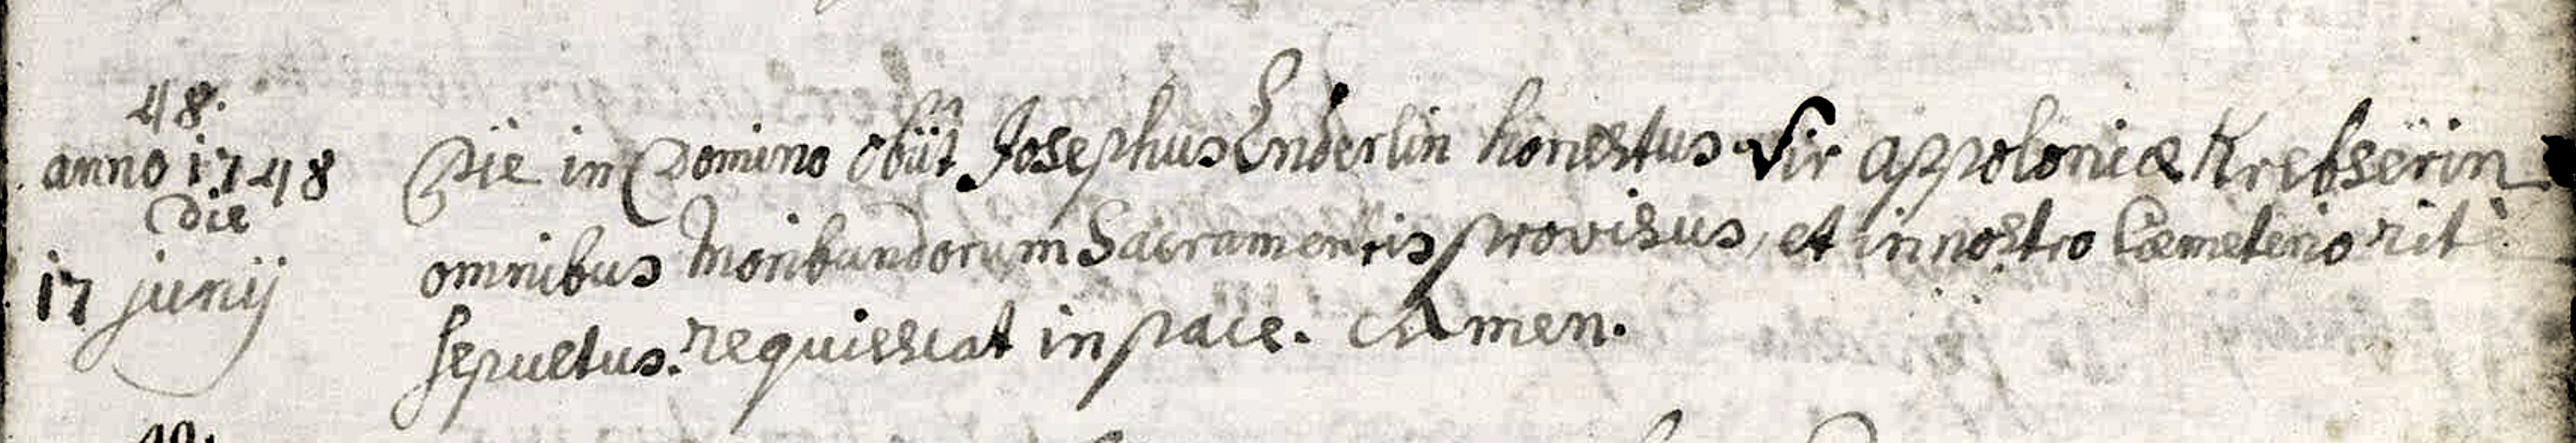 48.
anno 1748
die
17 junij
Pie in Domino obijt Josephus Enderlin honestus Vir Appoloniæ Krebserin
omnibus moribundorum Sacramentis provisus, et in nostro Cæmeterio rite
sepultus. requiescat in pace. Amen.
49.